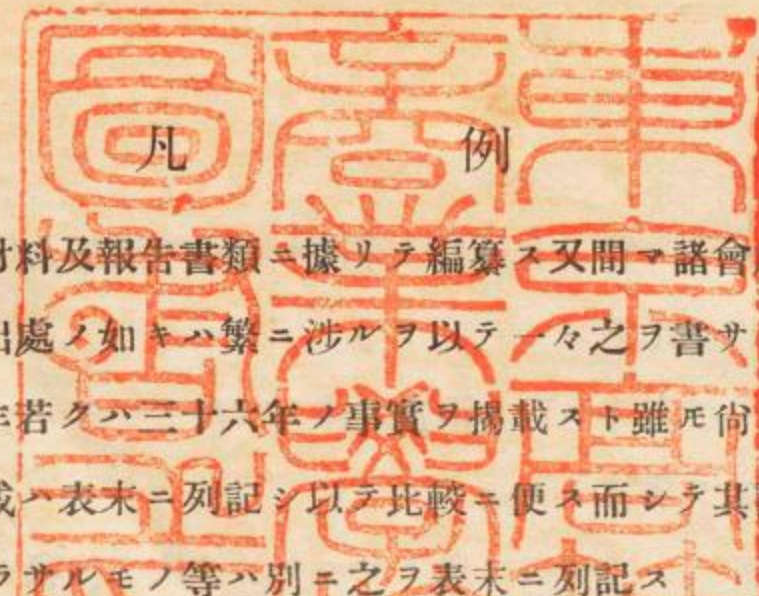 凡例
材料及報告書類ニ據リテ編纂ス又間マ諸會
出處ノ如キハ繁ニ涉ルヲ以テ一々之ヲ書サ
年若クハ三十六年ノ事實ヲ揭載スト雖𪜈尙
或ハ表末ニ列記シ以テ比較ニ便ス而シテ其
ラサルモノ等ハ別ニ之ヲ表末ニ列記ス